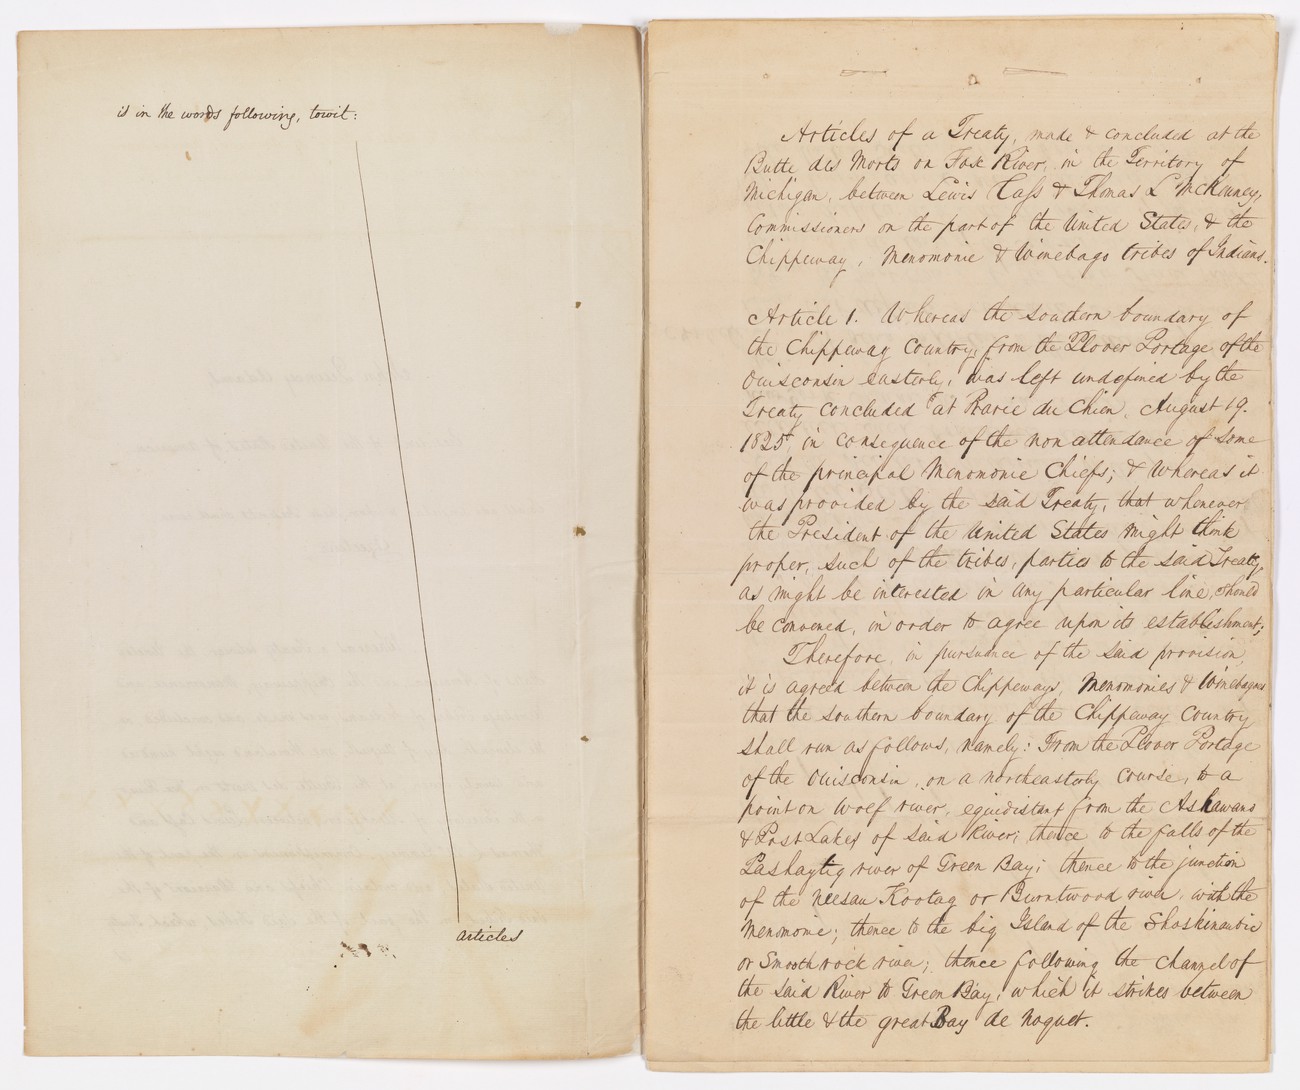 is in the words following, towit:
articles
Articles of a Treaty, made & concluded at the
Butte des Morts on Fox River, in the Territory of
Michigan, between Lewis Cass & Thomas L McKenney,
Commissioners on the part of the United States, & the
Chippeway, Menomonie & Winebago tribes of Indians.
Article 1. Whereas the southern boundary of
the Chippeway Country, from the Plover Portage of the
Ouisconsin easterly, was left undefined by the
Treaty concluded at Prarie du Chien, August 19.
1825, in consequence of the non attendance of some
of the principal Menomonie Chiefs; & Whereas it
was provided by the said Treaty, that whenever
the President of the United States might think
proper, such of the tribes, parties to the said Treaty,
as might be interested in any particular line, should
be convened, in order to agree upon its establishment;
Therefore, in pursuance of the said provision,
it is agreed between the Chippeways, Menomonies & Winebagoes
that the southern boundary of the Chippeway Country
shall run as follows, namely: From the Plover Portage
of the Ouisconsin, on a northeasterly course, to a
point on Wolf river, equidistant from the Ashawano
& Post Lakes of said River; thence to the falls of the
Pashaytig river of Green Bay; thence to the junction
of the Neesau Kootag or Burntwood river, with the
Menomonie; thence to the big Island of the Shoskinaubic
or Smooth rock river; thence following the channel of
the said River to Green Bay, which it strikes between
the little & the great Bay de Noquet.